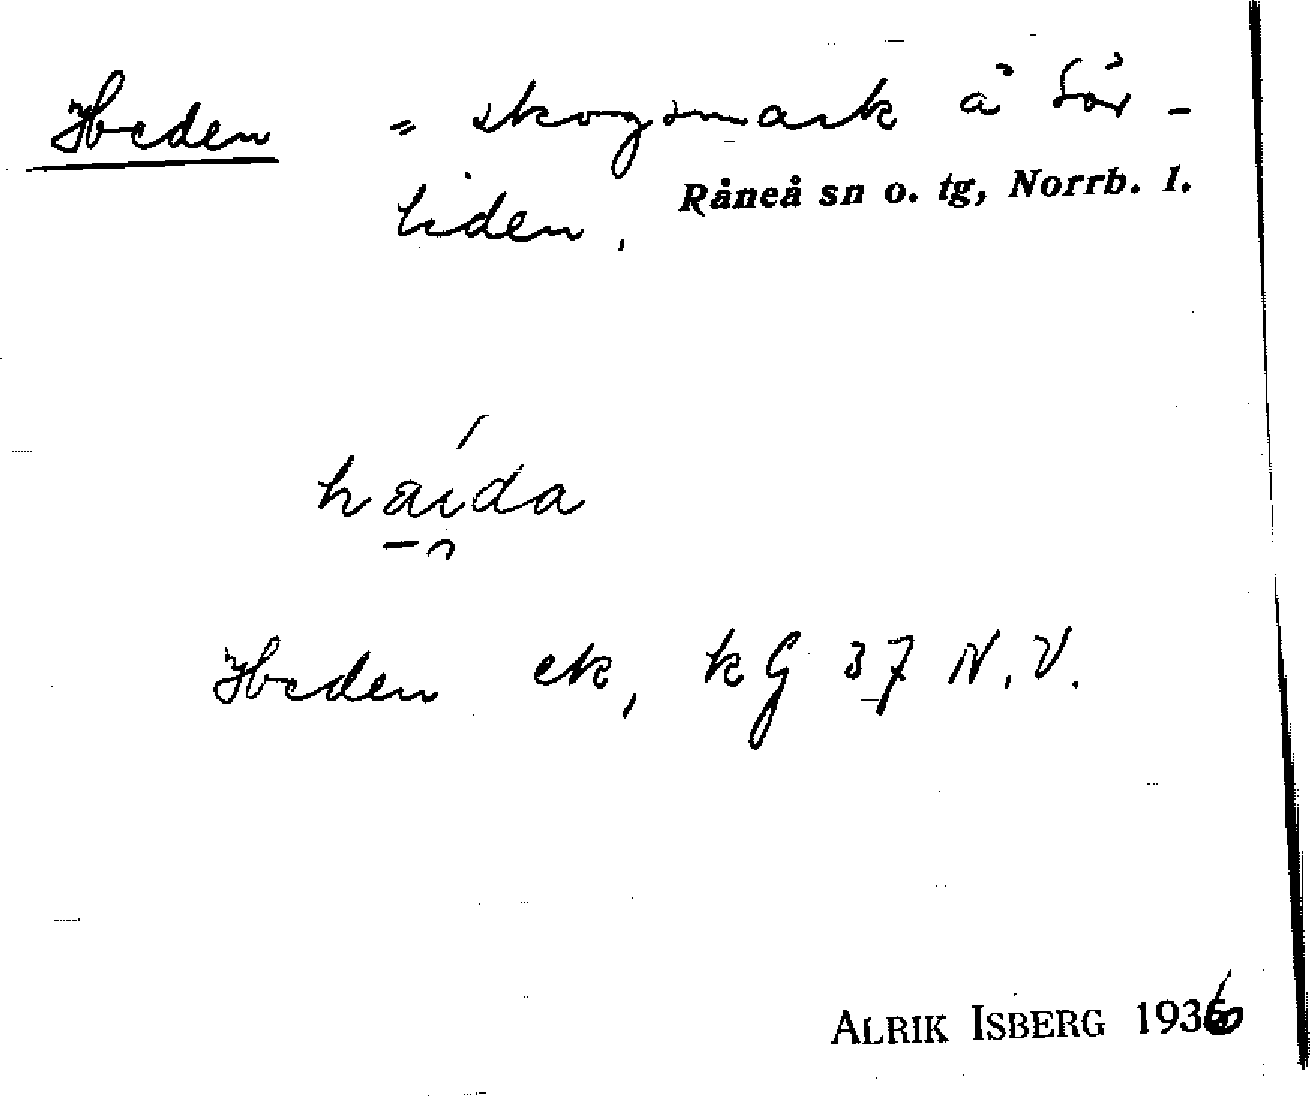 Heden = skogsmark å Sör-
liden. Råneå sn o. tg, Norrb. l.
haida
Heden ek, kG 37 N.V.
ALRIK ISBERG 1936